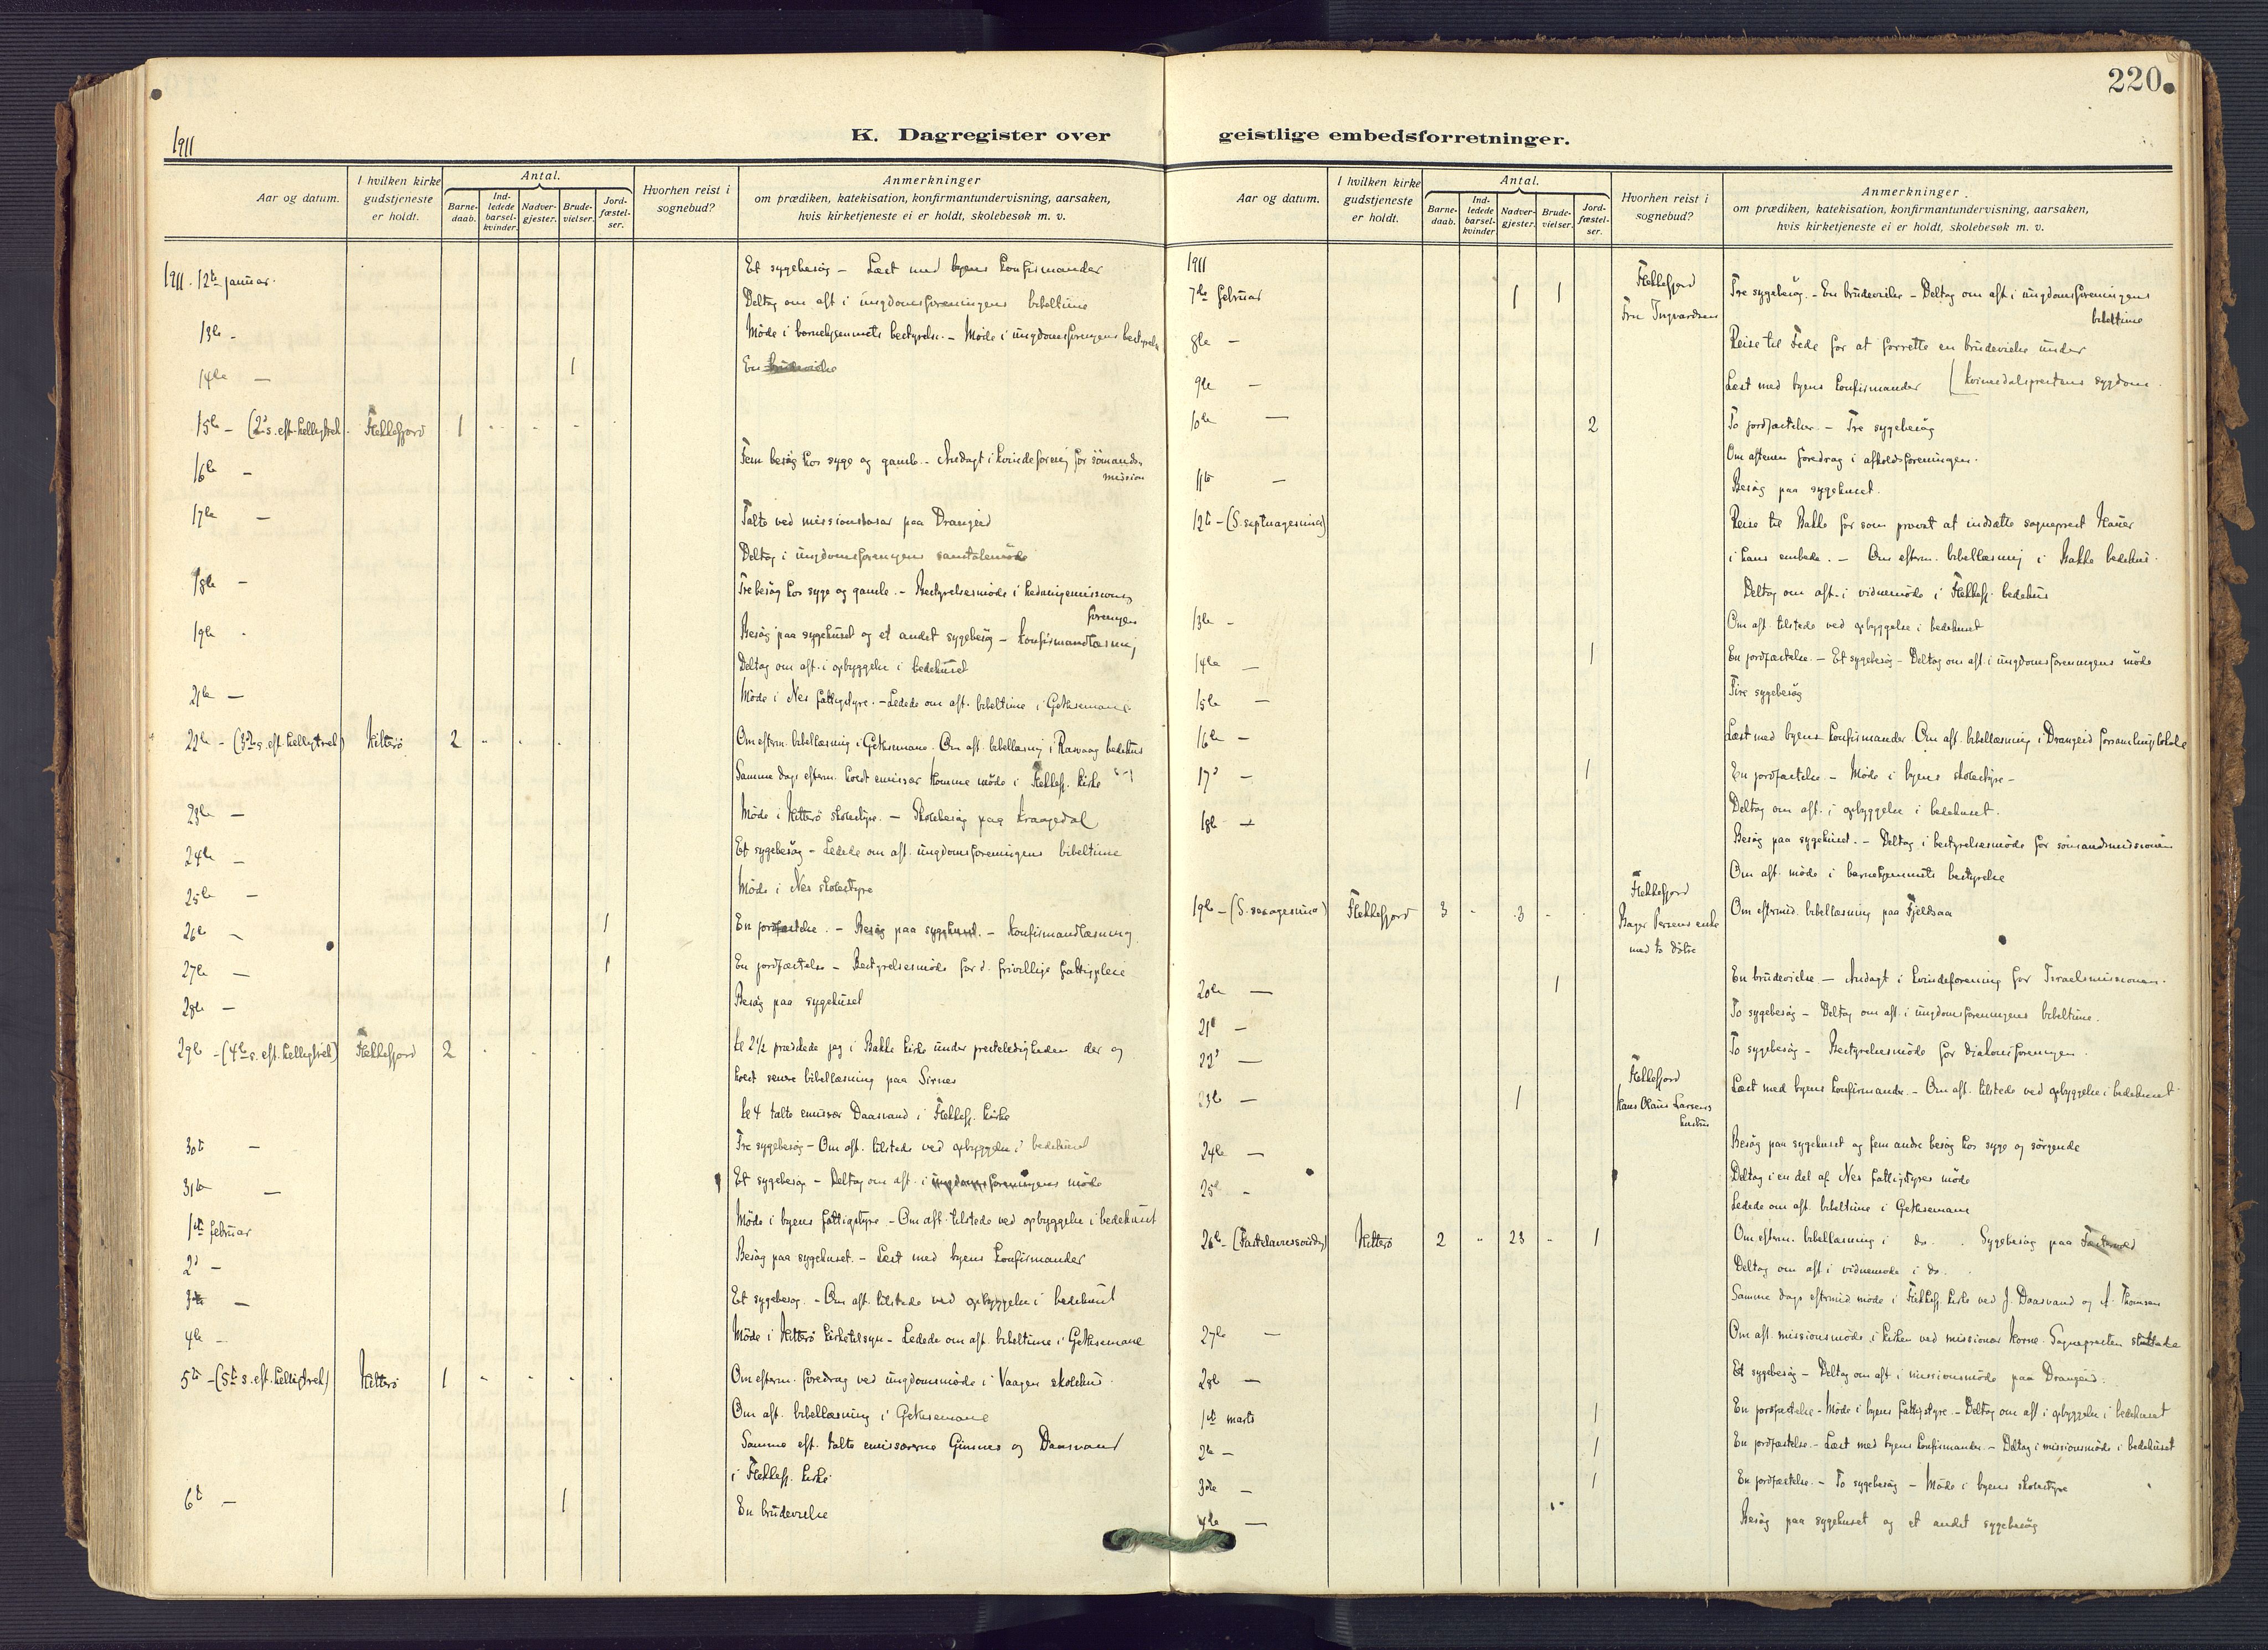 220.
1911
K. Dagregister over geistlige embedsforretninger.
Aar og datum.
I hvilken kirke gudstjeneste er holdt.
Antal.
Barnedaab.
Indledede barselkvinder.
Nadvergjester.
Brudevielser.
Jordfæstelser.
Hvorhen reist i sognebud?
Anmerkninger
om prædiken, katekisation, konfirmantundervisning, aarsaken,
hvis kirketjeneste ei er holdt, skolebesøk m. v.
1911. 12te januar. Et sygebesøg – Læst med byens konfirmander
Deltog om aft. i ungdomsforeningens bibeltime
13de - Møde i barnehjemmets bestyrelse. – Møde i ungdomsforeningens bestyrelse
14de — 1 En brudevielse
15de - (2d s. eft. helligtrek.) Flekkefjord 1 - - -
16de - Fem besøg hos syge og gamle. – Andagt i kvindeforening for sømands-
mission
17de — Talte ved missionsbasar paa Drangeid
Deltog i ungdomsforeningens samtalemøde
18de - Tre besøg hos syge og gamle. – Bestyrelsesmøde i hedningemissions
foreningen
19de - Besøg paa sygehuset og et andet sygebesøg – Konfirmandlæsning
Deltog om aft. i opbyggelse i bedehuset
21de — Møde i Nes fattigstyre. – Ledede om aft. bibeltime i Gethsemane.
22de - (3die s. eft. helligtrek.) Hitterø 2 - - - Om efterm. bibellæsning i Gethsemane. Om aft. bibellæsning i Rasvaag bedehus
Samme dags efterm. holdt emissær Homme møde i Flekkefj. kirke
23de — Møde i Hitterø skolestyre. – Skolebesøg paa Kraagedal
24de — Et sygebesøg – Ledede om aft. ungdomsforeningens bibeltime
25de — Møde i Nes skolestyre
26de — 1 En jordfæstelse. – Besøg paa sygehuset. – Konfirmandlæsning.
27de — 1 En jordfæstelse – Bestyrelsesmøde for d. frivillige fattigpleie
28de — Besøg paa sygehuset
29de - (4de s. eft. helligtrek.) Flekkefjord 2 - - - kl 2½ prædikede jeg i Bakke kirke under presteledigheden der og
holdt senere bibellæsning paa Sirnes
kl 4 talte emissær Daasvand i Flekkefj. kirke
30te — Tre sygebesøg – Om aft. tilstede ved opbyggelse i bedehuset
31te — Et sygebesøg – Deltog om aft. i ungdomsforeningens møde
1ste februar Møde i byens fattigstyre. – Om aft. tilstede ved opbyggelse i bedehuset
2d — Besøg paa sygehuset. – Læst med byens konfirmander
3die — Et sygebesøg. – Om aft. tilstede ved opbyggelse i bedehuset
4de — Møde i Hitterø kirketilsyn – Ledede om aft. bibeltime i Gethsemane
5te - (5te s. eft. helligtrek.) Hitterø 1 - - - - Om efterm. foredrag ved ungdomsmøde i Vaagen skolehus.
Om aft. bibellæsning i Gethsemane
Samme eft. talte emissærerne Gimnes og Daasvand
i Flekkefj. kirke
6te — 1 En brudevielse
Aar og datum.
I hvilken kirke gudstjeneste er holdt.
Antal.
Barnedaab.
Indledede barselkvinder
Nadvergjester.
Brudevielser.
Jordfæstelser.
Hvorhen reist i sognebud?
Anmerkninger
om prædiken, katekisation, konfirmantundervisning, aarsaken,
hvis kirketjeneste ei er holdt, skolebesøk m. v.
1911
7de februar 1 1 Flekkefjord Fru Ingvardsen Tre sygebesøg. – En brudevielse – Deltog om aft. i ungdomsforeningens
bibeltime
8de — Reise til Fede for at forrette en brudevielse under
9de — Læst med byens konfirmander [kvinesdalsprestens sygdom.
10de — 2 To jordfæstelser. – Tre sygebesøg
Om aftenen foredrag i afholdsforeningen.
11te — Besøg paa sygehuset.
12te - (S. septuagesima) Reise til Bakke for som provst at indsætte sogneprest Hauer
i hans embede. – Om efterm. bibellæsning i Bakke bedehus.
Deltog om aft. i vidnemøde i Flekkefj. bedehus
13de - Om aft. tilstede ved opbyggelse i bedehuset
14de — 1 En jordfæstelse. – Et sygebesøg – Deltog om aft. i ungdomsforeningens møde
15de — Fire sygebesøg
16de — Læst med byens konfirmander. Om aft. bibellæsning i Drangeid forsamlingslokale
17d — 1 En jordfæstelse – Møde i byens skolestyre –
Deltog om aft. i opbyggelse i bedehuset.
18de — Besøg paa sygehuset. – Deltog i bestyrelsesmøde for sømandsmissionen
Om aft. møde i barnehjemmets bestyrelse
19de - (S. sexagesima) Flekkefjord 3 - 3 - - Flekkefjord Bager Persens enke med to døtre Om eftermid. bibellæsning paa Fjeldsaa
20de — 1 En brudevielse – Andagt i kvindeforening for Israelsmissionen.
21d — To sygebesøg – Deltog om aft. i ungdomsforeningens bibeltime.
22d — To sygebesøg – Bestyrelsesmøde for diakoniforeningen.
23de — 1 Flekkefjord Hans Olaus Larsens hustru Læst med byens konfirmander. – Om aft. tilstede ved opbyggelse i bedehuset
24de — Besøg paa sygehuset og fem andre besøg hos syge og sørgende
25de - Deltog i en del af Nes fattigstyres møde
Ledede om aft. bibeltime i Gethsemane
26de - (Fastelavnssøndag) Hitterø 2 - 23 - 1 Om efterm. bibellæsning i do. . Sygebesøg paa
Deltog om aft. i vidnemøde i do.
Samme dags eftermid. møde i Flekkefj. kirke ved J. Daasvand og A. Thomsen
27de — Om aft. missionsmøde i kirken ved missionær Horne. Sognepresten sluttede
28de — Et sygebesøg – Deltog om aft. i missionsmøde paa Drangeid.
1ste marts 1 En jordfæstelse – Møde i byens fattigstyre. – Deltog om aft. i opbyggelse i bedehuset
2de — 1 En jordfæstelse. – Læst med byens konfirmander. – Deltog i missionsmøde i bedehuset
3die — 1 En jordfæstelse. – To sygebesøg – Møde i byens skolestyre
4de — Besøg paa sygehuset og et andet sygebesøg